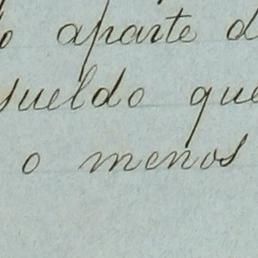 o aparte d
sueldo que
o menos